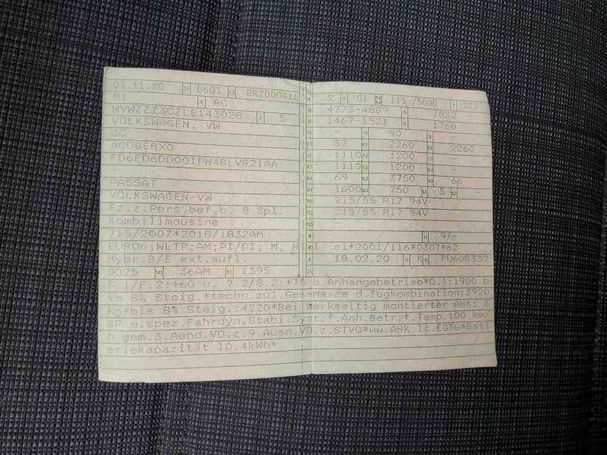 03.11.20 0603
M1 AC
WVWZZZ3CZLE143028 5
VOLKSWAGEN, VW
3C
ACDGEBX0
-
PASSAT
VOLKSWAGEN-VW
Fz.z.Pers.bef.b. 8 Spl.
Kombilimousine
715/2007*2018/1832AM
EURO6;WLTP;AM;PI/CI; M, N1
Hybr.B/E ext.aufl.
0025 36AM 1395
2 01 115 /5000 222
4773-4889 1832
1467-1521 1760
90
32 2260 2260
1110 1200 -
1110 1200 -
69 3750 66
1600 750 5 -
215/55 R17 94V
215/55 R17 94V
9/-
e1*2001/116*0307*62
18.02.20 K
F.1/F.2:+60 u. 7.2/8.2:+75 b.Anhangebetrieb*O.1:1900 b
is 8% Steig.*techn.zul.Ges-Masse d.Zugkombination:3900
kg*bis 8% Steig.:4220*Bei werkseitig montierter AHK: G
SP m.spez.Fahrdyn.Stabi.Syst.f.Anh.Betr.f.Temp.100 km/
h gem.3.Aend.VO.z.9.Ausn.VO.z.STVO*ww.AHK lt.EGTG*Batt
eriekapazität 10.4kWh*